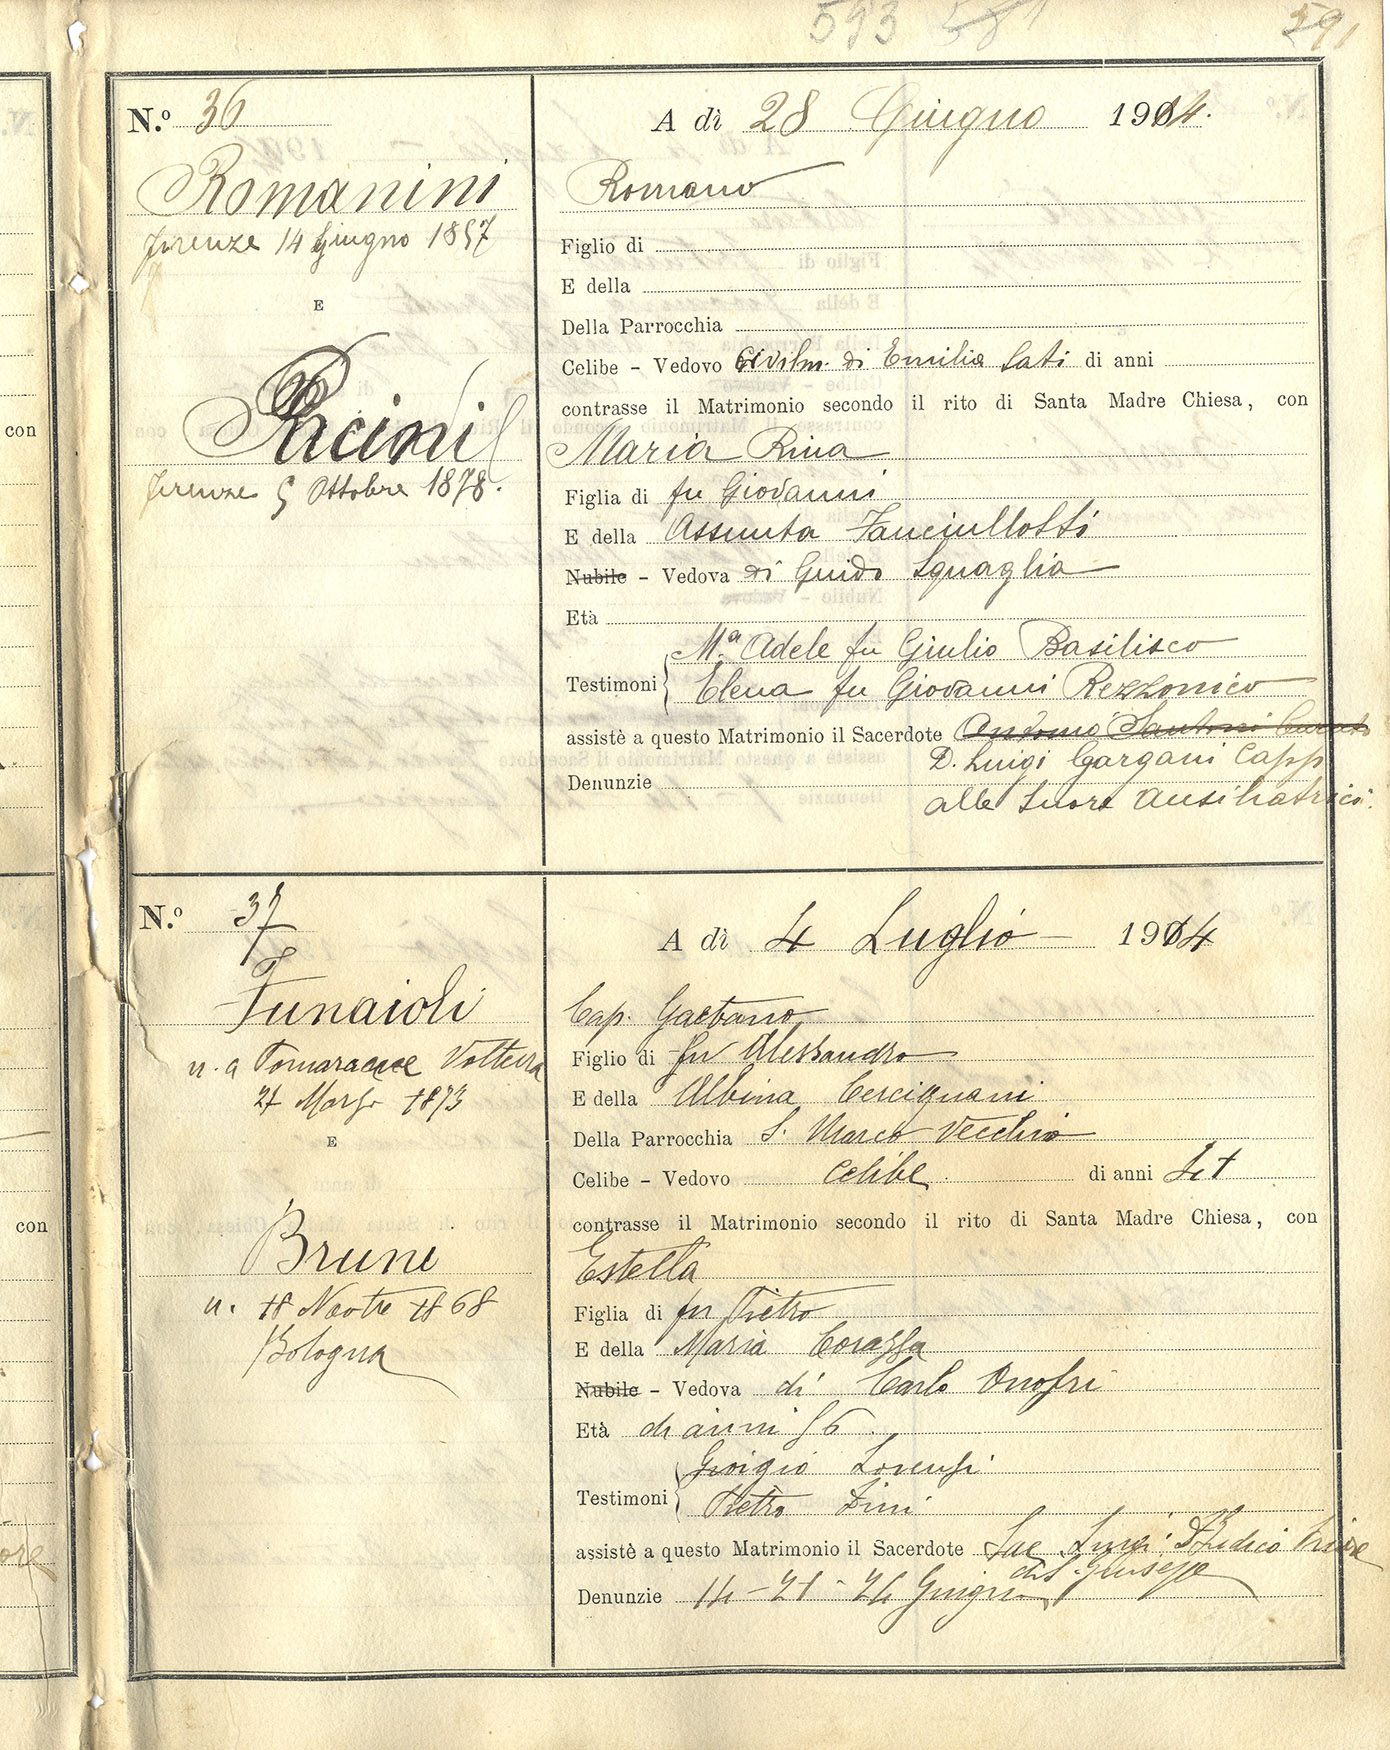 593 581 591
N.º 36
Romanini
Firenze 14 Giugno 1857
E
Pacini
Firenze 5 Ottobre 1878.
A dì 28 Giugno 1914.
Romano
Figlio di
E della
Della Parrocchia
Celibe - Vedovo Civilm. di Emilia Sati di anni
contrasse il Matrimonio secondo il rito di Santa Madre Chiesa, con
Maria Rina
Figlia di fu Giovanni
E della Assunta Fanciullotti
Nubile - Vedova di Guido Squaglia
Età
Mª. Adele fu Giulio Basilisco
Testimoni
Elena fu Giovanni Rezzonico
assistè a questo Matrimonio il Sacerdote Santoni Curato
D. Luigi Gargani Capp
Denunzie
alle Suore Ausiliatrici.
N.º 37
Funaioli
n. a Pomarance Volterra
21 Marzo 1873
E
Brune
n. 18 Novbre 1868
Bologna
A dì 4 Luglio 1914
Cap. Gaetano
Figlio di fu Alessandro
E della Albina Cercignani
Della Parrocchia S. Marco Vecchio
Celibe - Vedovo celibe. di anni 41
contrasse il Matrimonio secondo il rito di Santa Madre Chiesa, con
Estella
Figlia di fu Pietro
E della Maria Corazza
Nubile - Vedova di Carlo Onofri
Età di anni
Giorgio Lorenzi
Testimoni
Pietro Zini
assistè a questo Matrimonio il Sacerdote Sac Luigi Priore
di S. Giuseppe
Denunzie 14 - 21 - 24 Giugno
con
con
ore